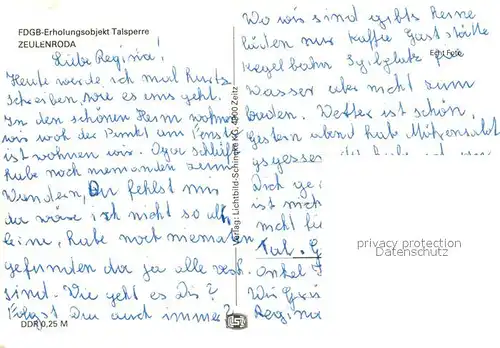 FDGB-Erholungsobjekt Talsperre
ZEULENRODA
Liebe Regina!
Heute werde ich mal kurz
schreiben, wie es uns geht.
In den schönen Heim wohnen
wir wo der Punkt am Fenster
ist wohnen wir. Opa schläft
habe noch niemanden zum
Wundern, Du fehlst mir
da wäre ich nicht so all
leine, habe noch niemanden
gefunden da ja alle
sind. Wie geht es Dir?
Folgst Du auch immer?
DDR 0,25 M
Verlag: Lichtbild-Schincke KG, 4900 Zeitz
Wo wir sind gibts keine
Läden nur Kaffee Gaststätte
Kegelbahn
Echt Foto
Wasser aber nicht zum
baden. Wetter ist schön,
gestern abend habe
gegessen
Dich
ist
nicht
Onkel
Regina
privacy protection
Datenschutz